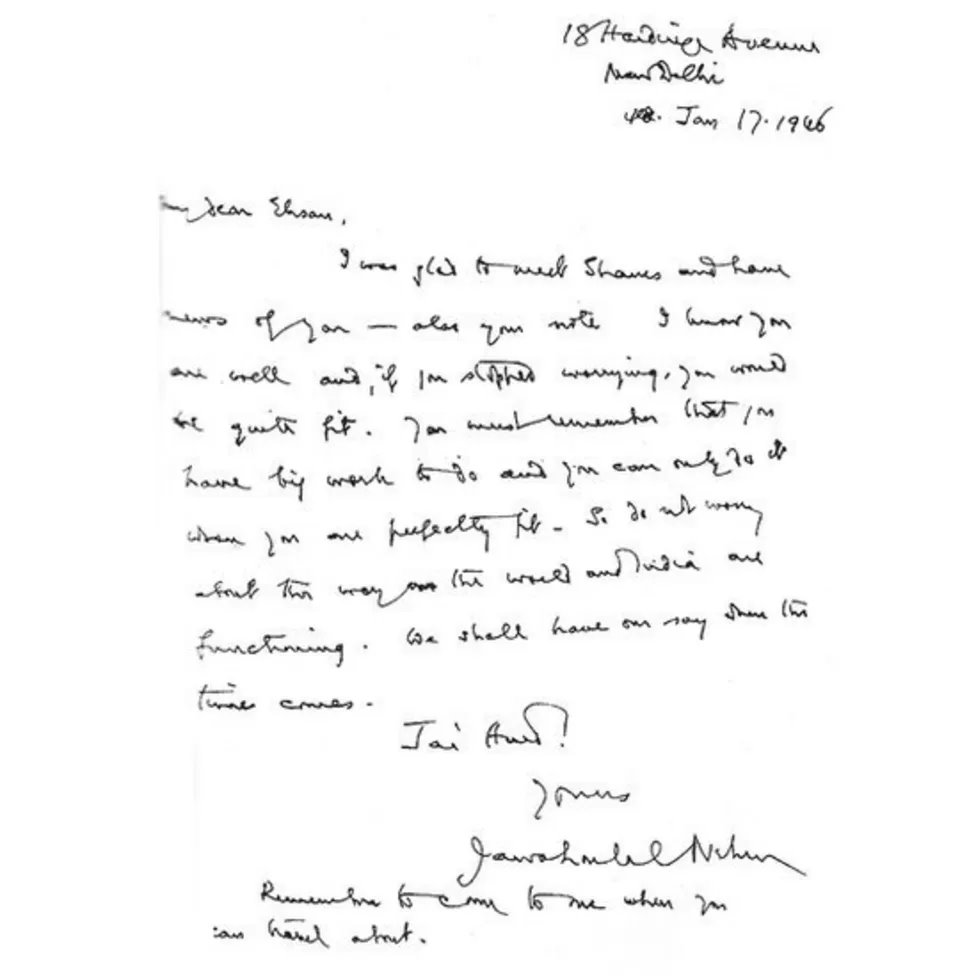 18 Hardinge Avenue
New Delhi
Jan 17. 1946
My dear Ehsan,
I was glad to meet Shanes and have
news of you — also your note I know you
are well and, if you stopped worrying, you would
be quite fit. You must remember that you
have big work to do and you can only do it
when you are perfectly fit – So do not worry
about the way the world and India are
functioning. We shall have our say when the
time comes.
Jai Hind!
Yours
Jawaharlal Nehru
Remember to come to me when you
can travel about.